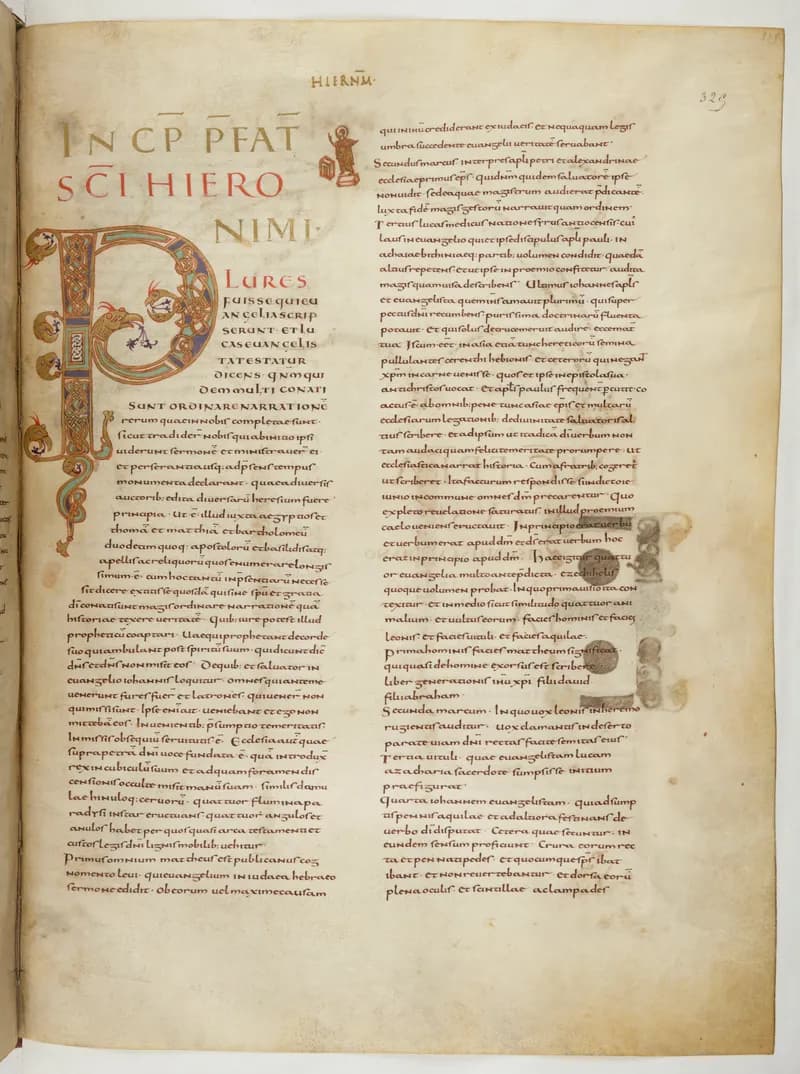 HIERNM·
329
INCP PFAT
SCI HIERO
NIMI·
PLURES
FUISSE QUI EU
ANGELIA SCRIP
SERUNT · ET LU
CAS EUANGELIS
TA TESTATUR
DICENS · QNM QUI
DEM MULTI CONATI
SUNT ORDINARE NARRATIONE
rerum quae in nobis completae sunt ·
sicut tradider nobis qui ab initio ipsi
uiderunt sermone et ministrauer ei
et perseuerantia usq; ad psens tempus
monumenta declarant · quae a diuersis
auctorib; edita diuersaru heresium fuere
principia · Ut e illud iuxta aegyptios et
thoma et matthia et bartholomeu
duodecim quoq; apostoloru et basilidis atq;
apellis ac reliquoru quos enumerare longis
simum e · cum hoc tantu inpsentiaru necesse
sit dicere extitisse quosda qui sine spu et gratia
di conati sunt magis ordinare narratione qua
historiae texere ueritate · Quib; iure potest illud
propheticu coaptari · Uae qui prophetant de corde
suo qui ambulant post spiritu suum · qui dicunt dic
dns et dns non misit eos · De quib; et saluator in
euangelio iohannis loquitur · omnes qui ante me
uenerunt fures fuer et latrones · qui uener non
qui missi sunt · Ipse eni ait · ueniebant et ego non
mitteba eos · In uenientib; psumptio temeritatis
In missis obsequiu seruitutis e · Ecclesia aut quae
supra petra dni uoce fundata e · qua introdux
rex in cubiculu suum et ad quam foramen dis
censionis occulte misit manu suam · similis damu
lae hinuloq; ceruoru · quattuor flumina pa
radysi instar eructuans quattuor angulos et
anulos habet per quos quasi arca testamenti et
custos legis dni lignis mobilib; uehitur ·
Primus omnium mattheus est publicanus cog
nomento leui · qui euangelium in iudaea hebraeo
sermone edidit · Ob eorum uel maxime causam
qui in ihu crediderant ex iudaeis · et nequaquam legis
umbra succedente euangelii ueritate seruabant ·
Secundus marcus interpres apli petri et alexandrinae
ecclesiae primus eps · qui dnm quidem saluatore ipse
non uidit · sed ea quae magistrum audierat pdicante
iuxta fide magis gestoru narrauit quam ordinem ·
Tertius lucas medicus natione syrus antiocensis cui
laus in euangelio qui et ipse discipulus apli pauli · in
achaiae bithiniaeq; partib; uolumen condidit quaeda
altius repetens et ut ipse in proemio confitetur audita
magis quam uisa describens · Ultimus iohannes apls
et euangelista quem ihs amauit plurimu · qui super
pectus dni recumbens purissima doctrinaru fluenta
potauit · Et qui solus de cruce meruit audire · ecce mat
tua · Is cum eet in asia et ia tunc hereticoru semina
pullularent cerenthi hebionis et ceteroru qui negant
xpm in carne uenisse · quos et ipse in epistola sua
antichristos uocat · Et apls paulus frequent pcutit · co
actus e ab omnib; pene tunc asiae epis et multaru
ecclesiarum legationib; de diuinitate saluatoris al
tius scribere · et ad ipsum ut ita dica di uerbum non
tam audaci quam felici temeritate prorumpere · ut
ecclesiastica narrat historia · Cum a fratrib; cogeret
ut scriberet · Ita facturum respondisse si indicto ie
iunio in commune omnes dm precarentur · Quo
expleto reuelatione saturatus in illud proemium
caelo ueniens eructauit · In principio erat uerbu
et uerbum erat apud dm et ds erat uerbum hoc
erat in principio apud dm · Haec igitur quattu
or euangelia multo ante pdicta · ezechihelis
quoque uolumen probat · In quo prima uisio ita con
texitur · et in medio sicut similitudo quattuor ani
malium · et uultus eorum · facies hominis et facies
leonis et facies uituli · et facies aquilae ·
Prima hominis facies mattheum significat ·
qui quasi de homine exorsus est scribere
liber generationis ihu xpi fili dauid
fili abraham ·
Secunda marcum · In quo uox leonis in heremo
rugientis auditur · Uox clamantis in deserto
parate uiam dni rectas facite semitas eius ·
Tertia uituli · quae euangelistam lucam
a zacharia sacerdote sumpsisse initium
praefigurat ·
Quarta iohannem euangelistam · quia adsump
tis pennis aquilae et ad altiora festinans de
uerbo di disputat · Cetera quae secuntur · in
eundem sensum proficiunt · Crura eorum rec
ta et pennati pedes et quocumque sps ibat
ibant · et non reuertebantur · et dorsa eoru
plena oculis · et scintillae ac lampades